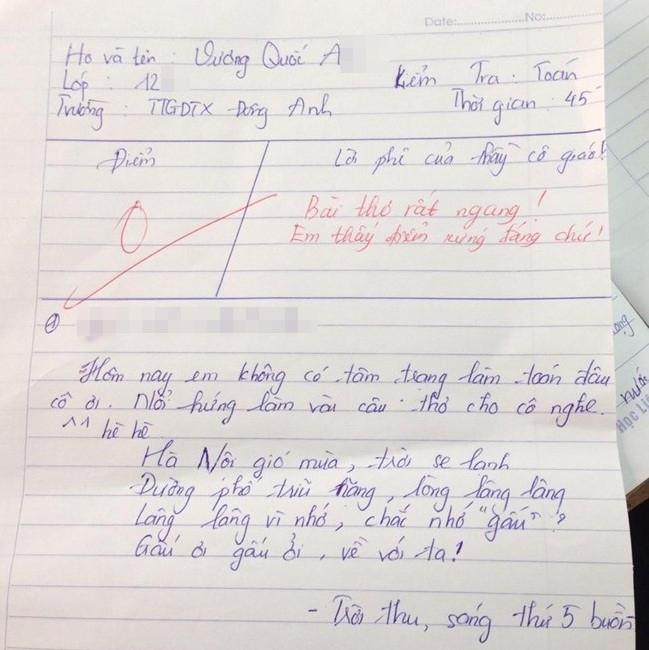 Date: No:
Họ và tên : Vương Quốc A
Lớp : 12
Kiểm Tra : Toán
Trường : TTGDTX Đông Anh
Thời gian : 45'
Điểm
Lời phê của thầy cô giáo!
0
Bài thơ rất ngang !
Em thấy điểm xứng đáng chứ!
1
Hôm nay em không có tâm trạng làm toán đâu
cô ơi. Nổi hứng làm vài câu thơ cho cô nghe.
^^ hè hè
Hà Nội gió mùa, trời se lạnh
Đường phố trĩu nặng, lòng lâng lâng
Lâng lâng vì nhớ, chắc nhớ "gấu" ?
Gấu ơi gấu ởi, về với ta!
- Trời thu, sáng thứ 5 buồn